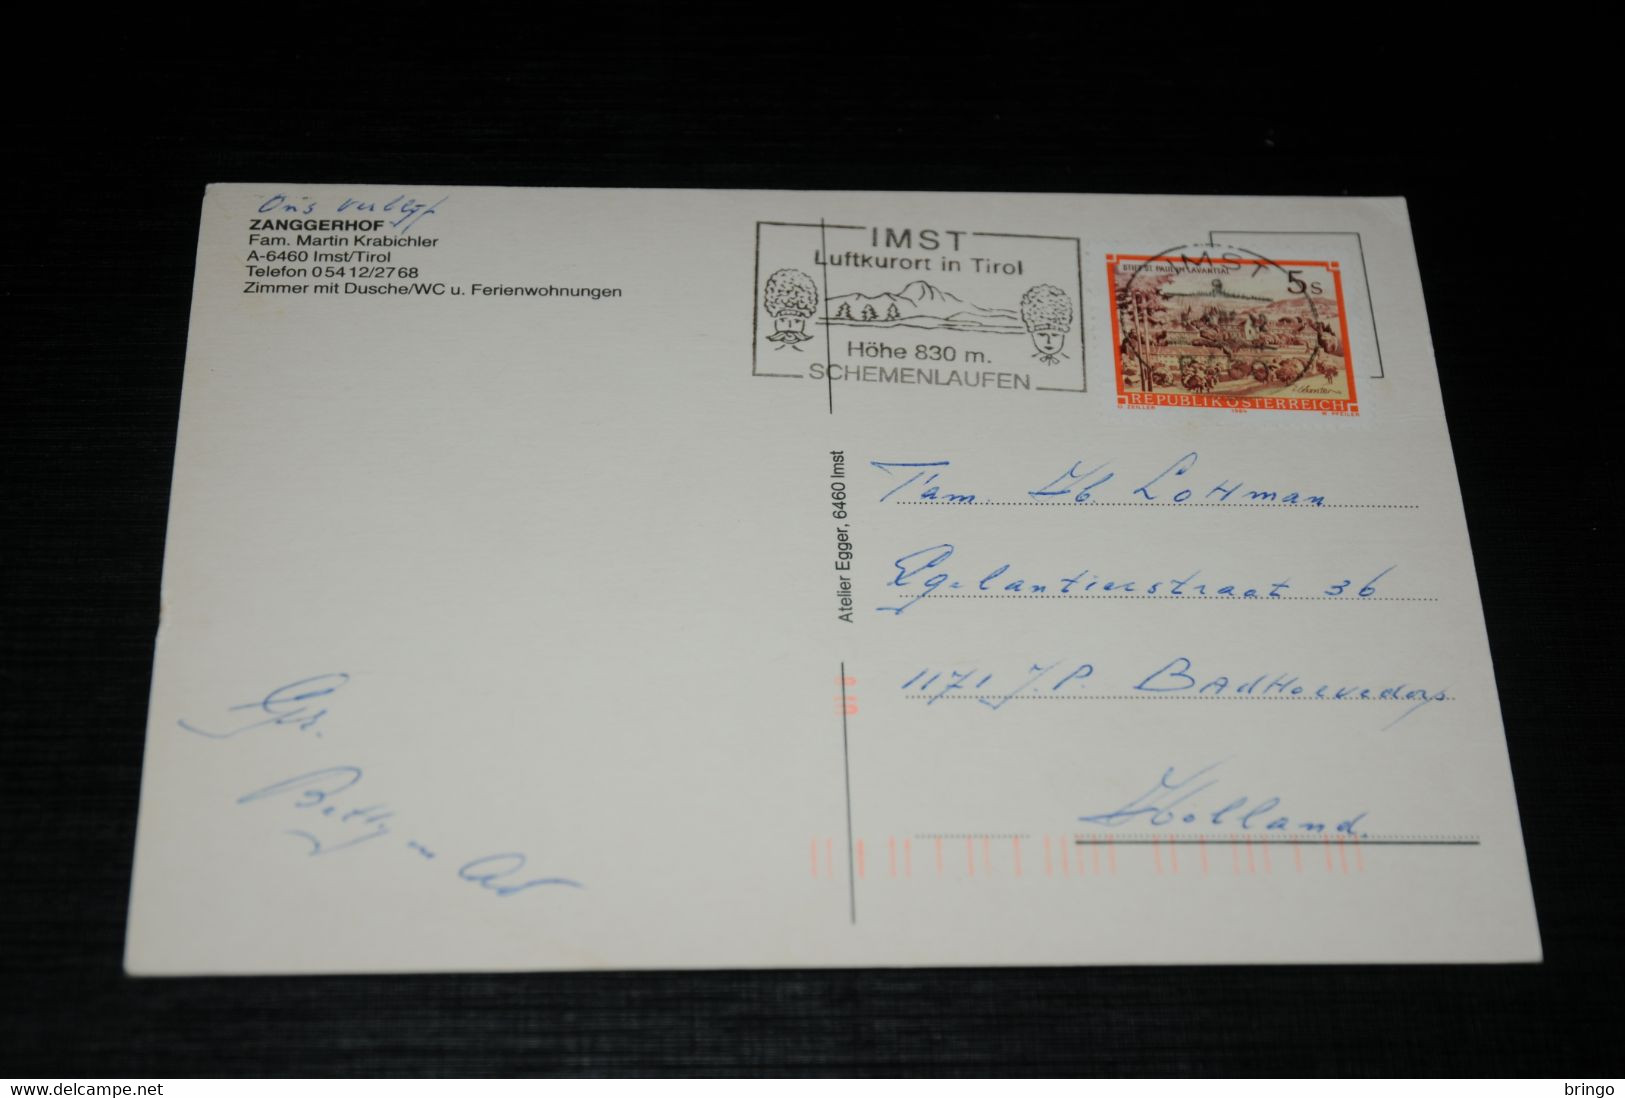 Ons verblijf
ZANGGERHOF
Fam. Martin Krabichler
A-6460 Imst/Tirol
Telefon 05412/2768
Zimmer mit Dusche/WC u. Ferienwohnungen
IMST
Luftkurort in Tirol
Höhe 830 m.
SCHEMENLAUFEN
IMST
STIFT ST. PAUL IM LAVANTTAL
5s
REPUBLIK ÖSTERREICH
O. ZEILLER 1984 W. PFEILER
Atelier Egger, 6460 Imst
Fam. Lottman
Egelantierstraat 36
1171 J.P. Badhoevedorp
Holland.
Gr.
Betty - Ad
delcampe.net
bringo